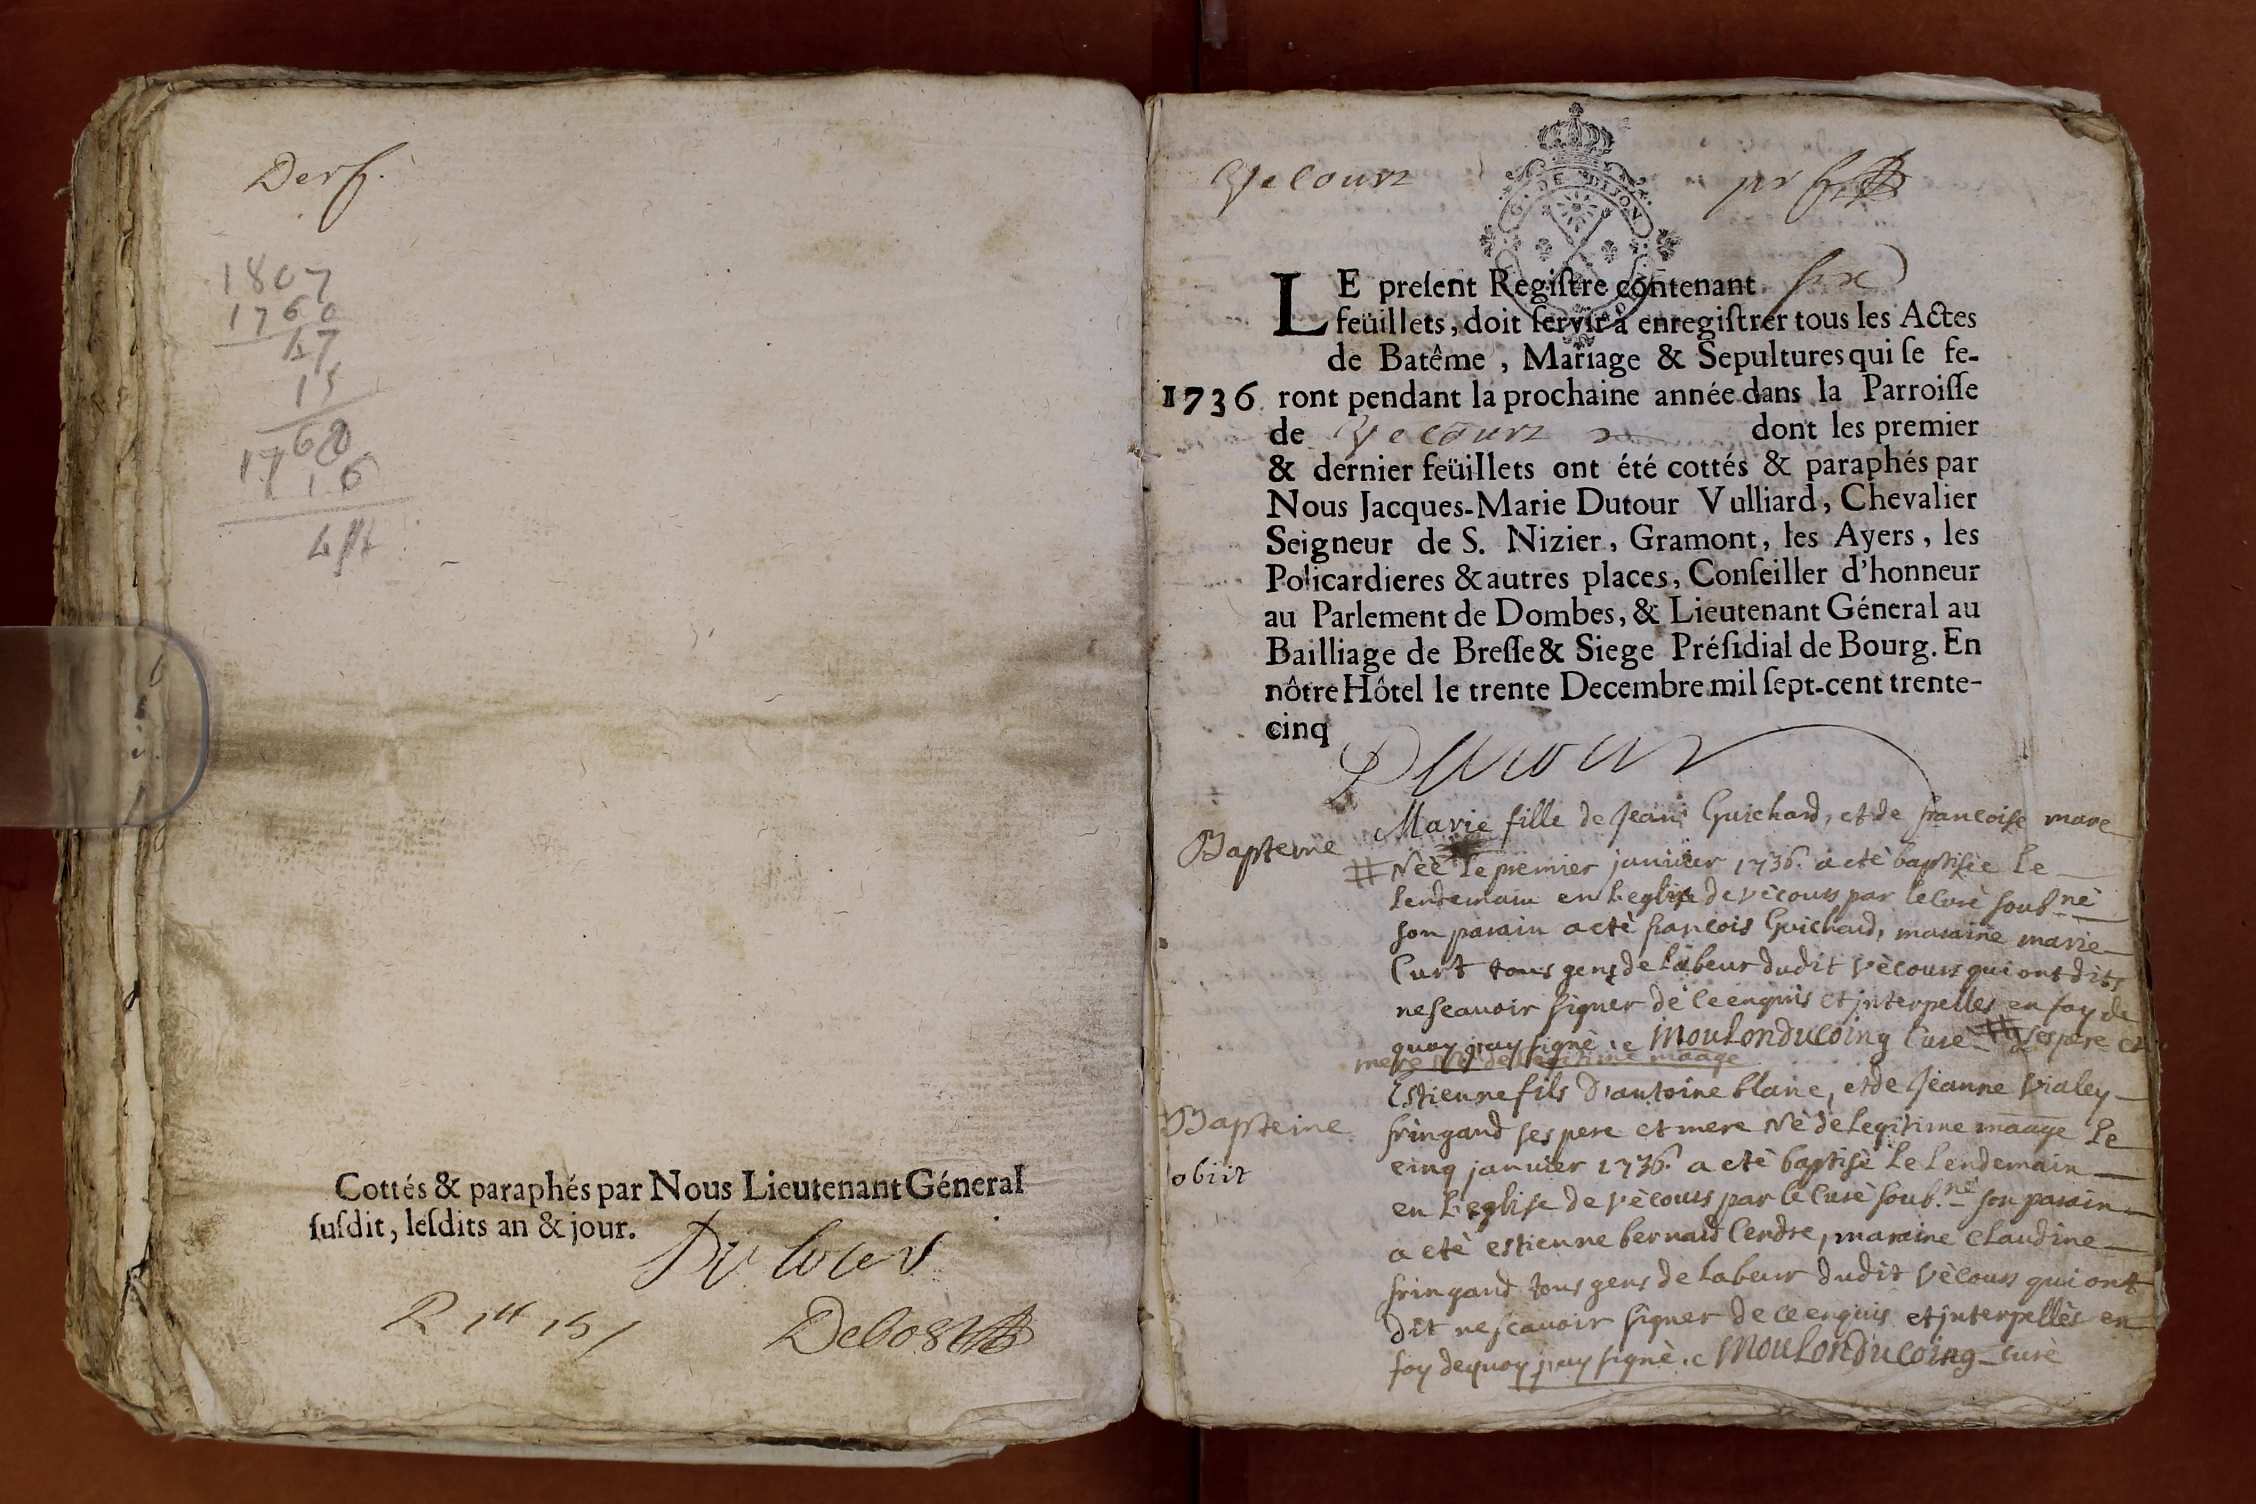 Derf.
1807
1760
47
15
1760
1716
Cottés & paraphés par Nous Lieutenant Géneral
ſuſdit, leſdits an & jour.
Dutour
Debost
Vecours
G. DE DIJON
LE preſent Regiſtre contenant six
feüillets, doit ſervir à enregiſtrer tous les Actes
de Batême, Mariage & Sepultures qui ſe fe-
1736 ront pendant la prochaine année dans la Parroiſſe
de Vecours dont les premier
& dernier feüillets ont été cottés & paraphés par
Nous Jacques-Marie Dutour Vulliard, Chevalier
Seigneur de S. Nizier, Gramont, les Ayers, les
Policardieres & autres places, Conſeiller d'honneur
au Parlement de Dombes, & Lieutenant Géneral au
Bailliage de Breſſe & Siege Préſidial de Bourg. En
nôtre Hôtel le trente Decembre mil ſept-cent trente-
cinq
Dutour
Bapteme Marie fille de Jean Guichard, et de francoise mare
# Néè le premier janvier 1736. a etè baptisèe le
lendemain en l'eglise de vècours par le Curè soub.nè
son parain a etè francois Guichard, maraine marie
Curt tous gens de labeur dudit vècours qui ont dits
ne scavoir signer de ce enquis et interpelles en foy de
quoy j'ay signè. e Moulonducoing Curè # ses pere et
mere Né de legitime maage
Bapteme Estienne fils d'antoine blanc, et de Jèanne vialey
fringand ses pere et mere Nè de legitime maage le
obiit cinq janvier 1736. a etè baptisè le lendemain
en l'eglise de vècours par le Curè soub.nè son parain
a etè estienne bernard Cendre, maraine claudine
fringand tous gens de labeur dudit vècours qui ont
dit ne scavoir signer de ce enquis et interpellès en
foy de quoy j'ay signè. e Moulonducoing curè